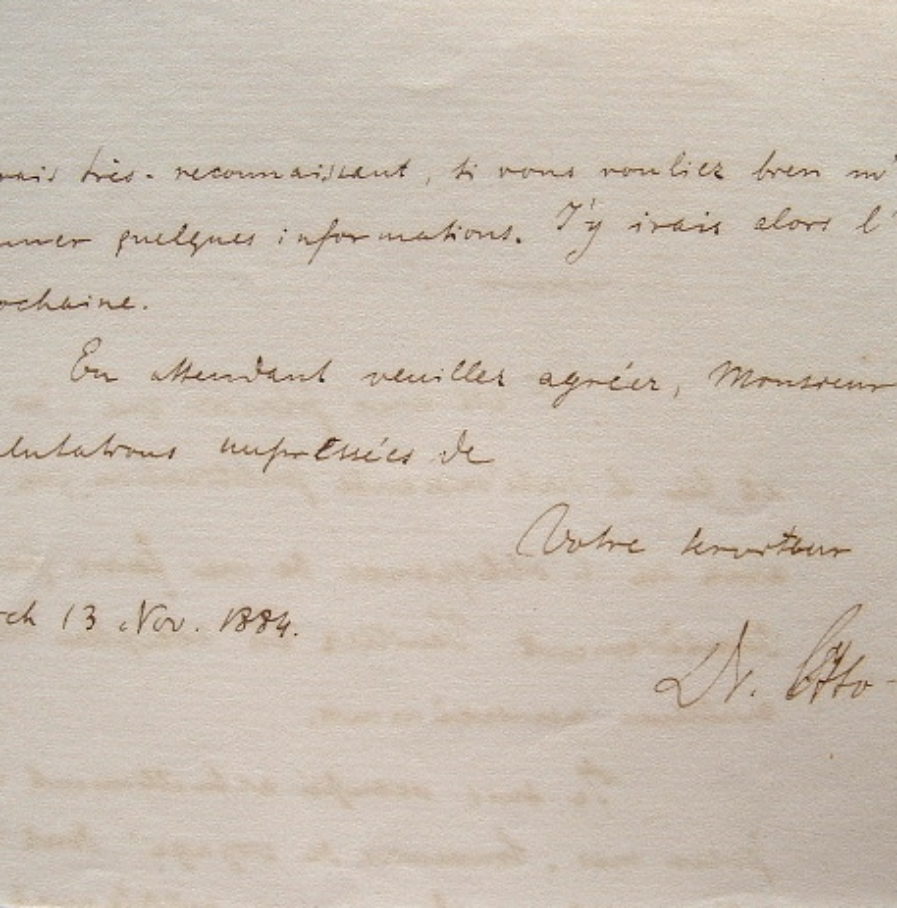 rais très-reconnaissant, si vous vouliez bien m'
nner quelques informations. J'y irais alors l'
ochaine.
En attendant veuillez agréer, Monsieur
lutations empressées de
Votre serviteur
rch 13 Nov. 1884.
Dr. Otto-